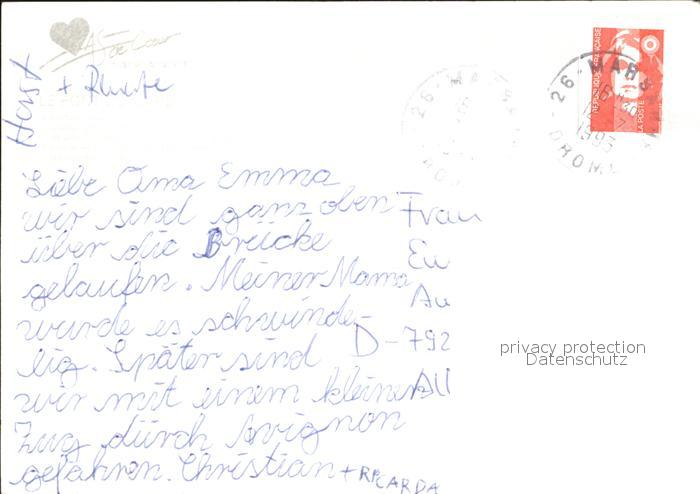 As de Cœur
Horst
+ Renate
Liebe Oma Emma
wir sind ganz oben
über die Brücke
gelaufen. Meiner Mama
wurde es schwinde-
lig. Später sind
wir mit einem kleinen
Zug durch Avignon
gefahren. Christian + RICARDA
Frau
Eu
Au
D-792
All
26 - MARS
1993
DROME
REPUBLIQUE FRANÇAISE
LA POSTE
privacy protection
Datenschutz